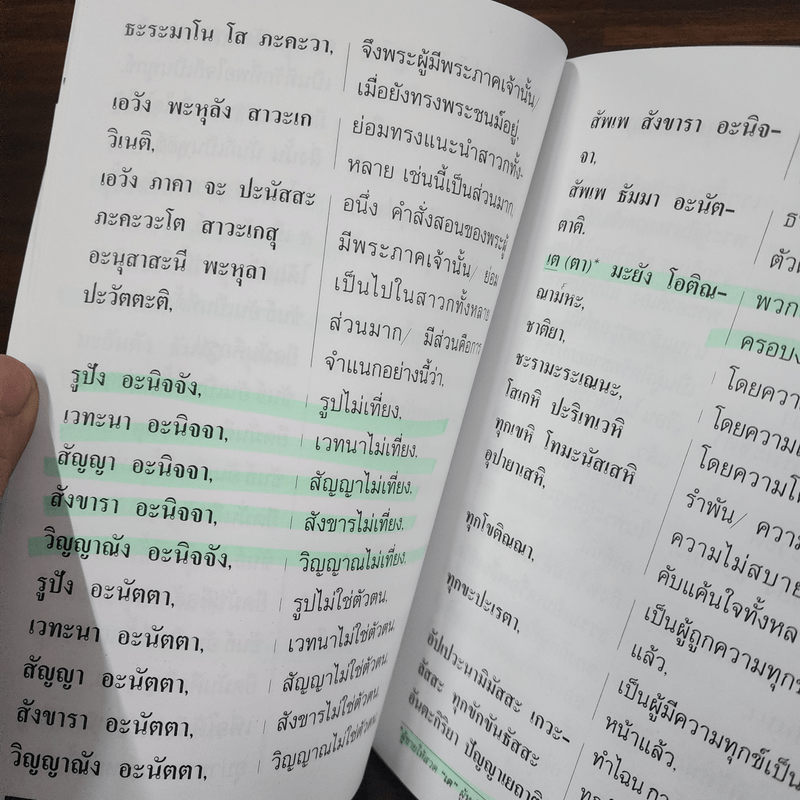 ธะระมาโน โส ภะคะวา,
เอวัง พะหุลัง สาวะเก
วิเนติ,
เอวัง ภาคา จะ ปะนัสสะ
ภะคะวะโต สาวะเกสุ
อะนุสาสะนี พะหุลา
ปะวัตตะติ,
จึงพระผู้มีพระภาคเจ้านั้น/
เมื่อยังทรงพระชนม์อยู่,
ย่อมทรงแนะนำสาวกทั้ง-
หลาย เช่นนี้เป็นส่วนมาก,
อนึ่ง คำสั่งสอนของพระผู้
มีพระภาคเจ้านั้น/ ย่อม
เป็นไปในสาวกทั้งหลาย
ส่วนมาก/ มีส่วนคือการ
จำแนกอย่างนี้ว่า,
รูปัง อะนิจจัง, รูปไม่เที่ยง,
เวทะนา อะนิจจา, เวทนาไม่เที่ยง,
สัญญา อะนิจจา, สัญญาไม่เที่ยง,
สังขารา อะนิจจา, สังขารไม่เที่ยง,
วิญญาณัง อะนิจจัง, วิญญาณไม่เที่ยง,
รูปัง อะนัตตา, รูปไม่ใช่ตัวตน,
เวทะนา อะนัตตา, เวทนาไม่ใช่ตัวตน,
สัญญา อะนัตตา, สัญญาไม่ใช่ตัวตน,
สังขารา อะนัตตา, สังขารไม่ใช่ตัวตน,
วิญญาณัง อะนัตตา, วิญญาณไม่ใช่ตัวตน,
สัพเพ สังขารา อะนิจ-
จา,
สัพเพ ธัมมา อะนัต-
ตาติ,
เต (ตา)* มะยัง โอติณ-
ณาม๎หะ,
ชาติยา,
ชะรามะระเณนะ,
โสเกหิ ปะริเทเวหิ
ทุกเขหิ โทมะนัสเสหิ
อุปายาเสหิ,
ทุกโขติณณา,
ทุกขะปะเรตา,
อัปเปวะนามิมัสสะ เกวะ-
ลัสสะ ทุกขักขันธัสสะ
อันตะกิริยา ปัญญาเยถาติ
พวก
ครอบง
โดยควา
โดยความเ
โดยความโ
รำพัน/ ความ
ความไม่สบาย
คับแค้นใจทั้งหล
เป็นผู้ถูกความทุกข
แล้ว,
เป็นผู้มีความทุกข์เป็น
หน้าแล้ว,
ทำไฉน กา